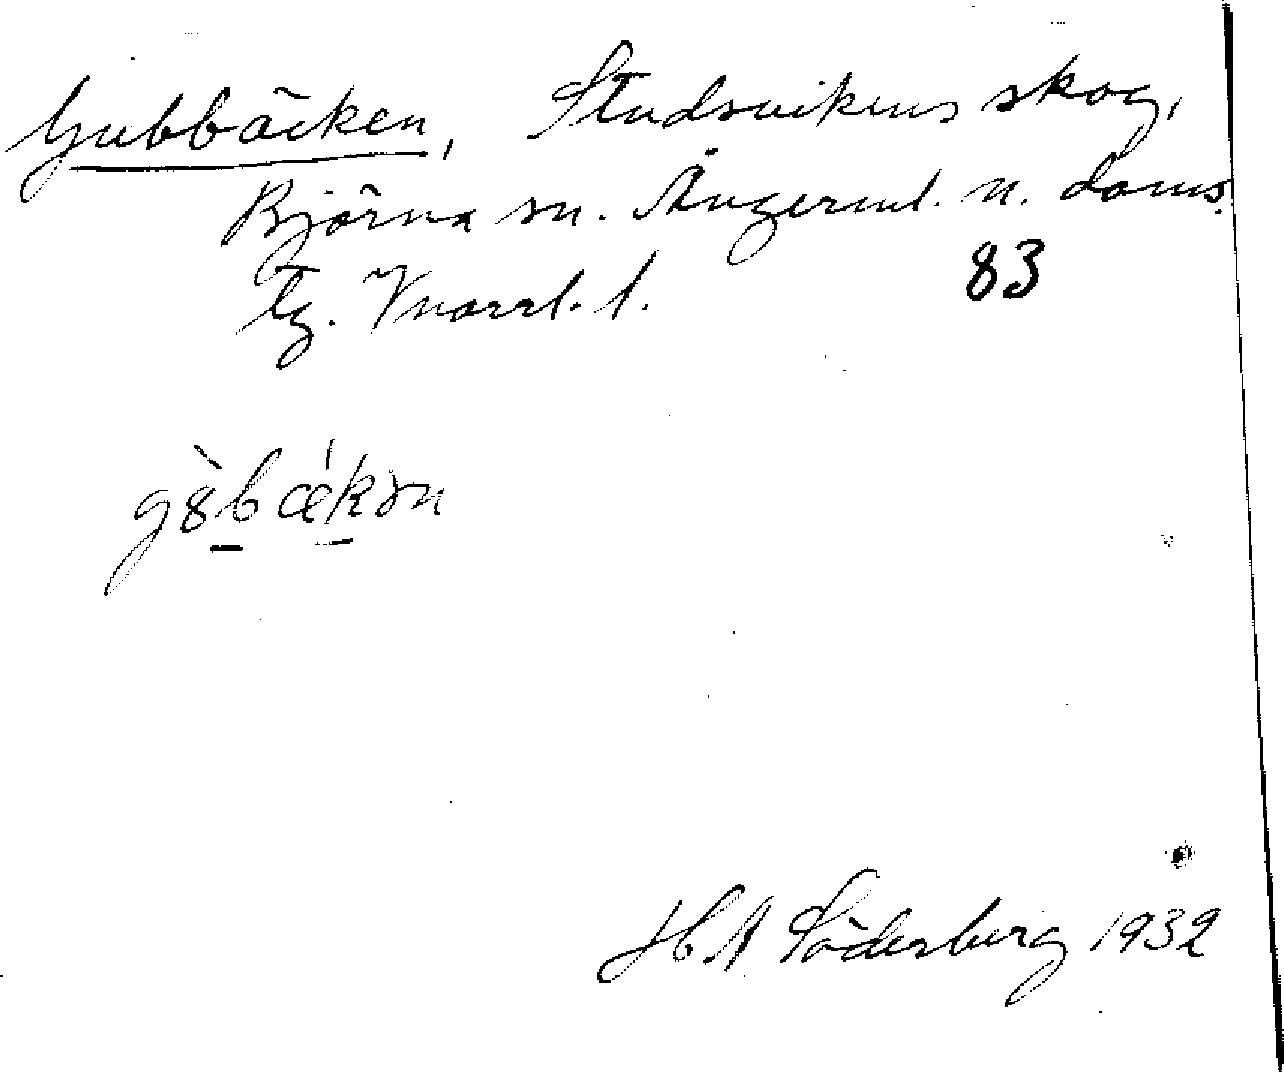 Gubbäcken, Studsvikens skog,
Björna sn. Ångerml. n. doms.
tg. Vnorrl. l. 83
gȣ̀bǽkən
H A Söderberg 1932